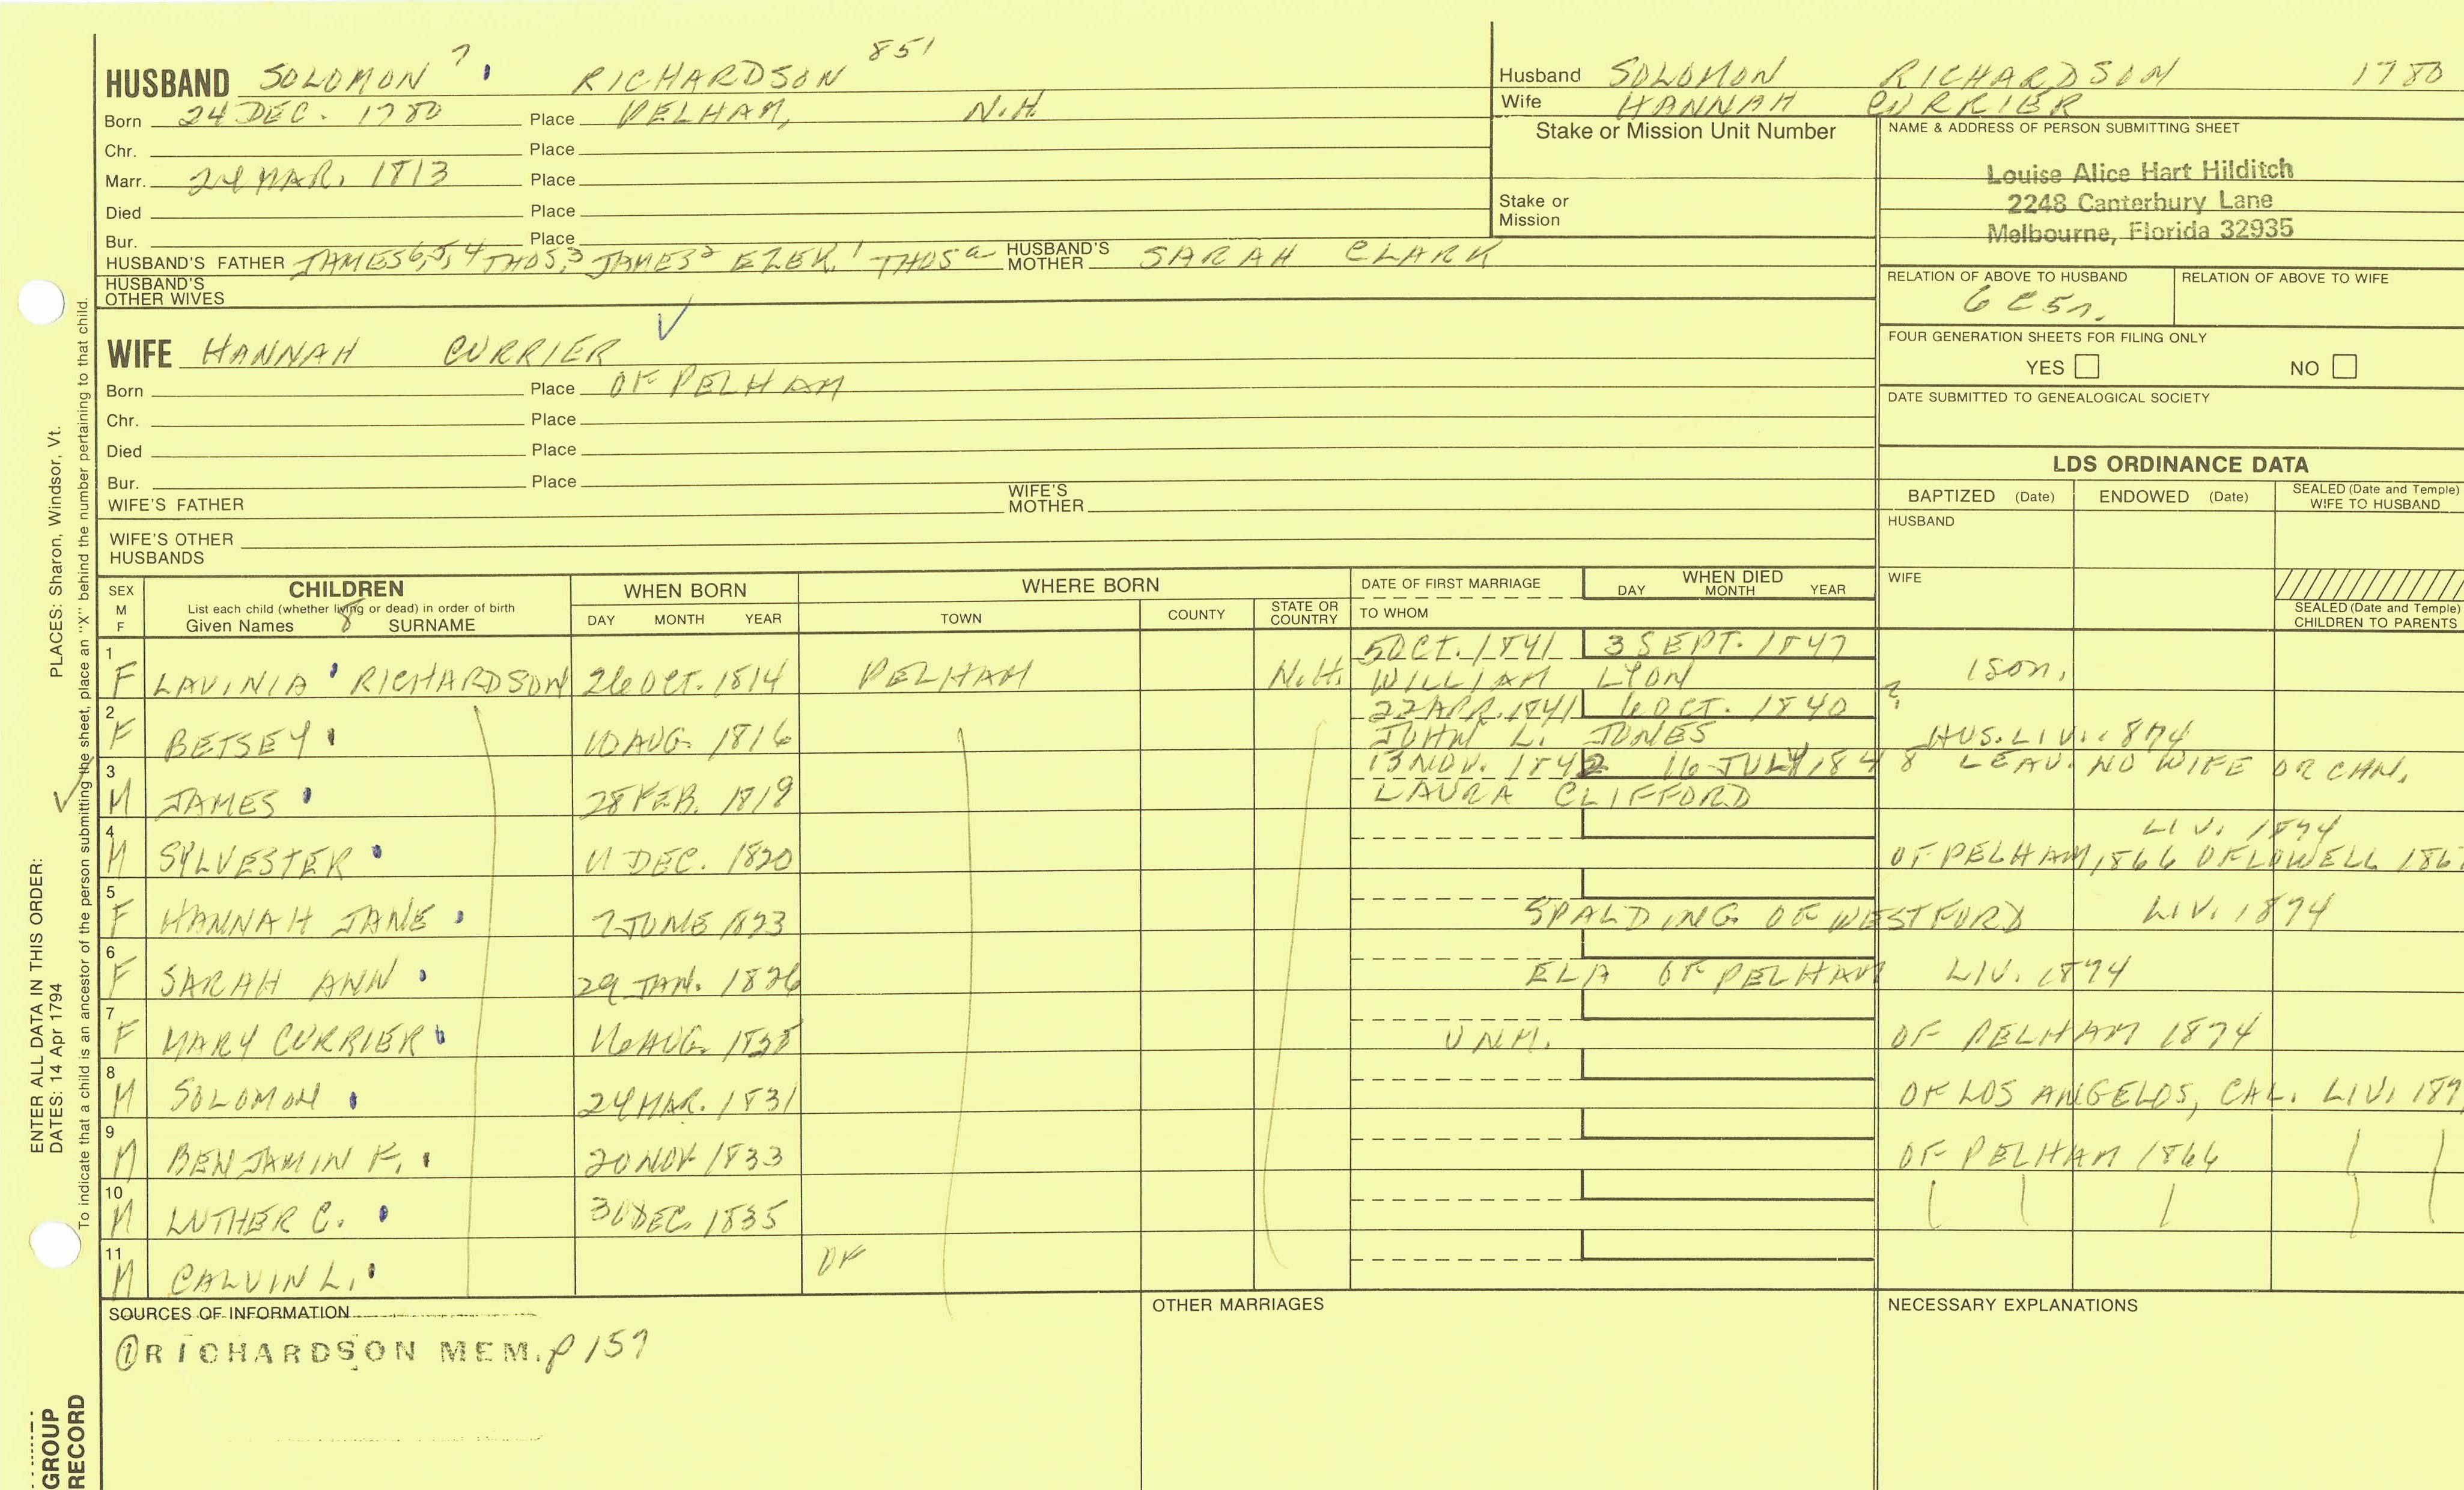 HUSBAND SOLOMON 7 RICHARDSON 851
Born 24 DEC. 1780 Place PELHAM, N.H.
Chr. Place
Marr. 24 MAR. 1813 Place
Died Place
Bur. Place
HUSBAND'S FATHER JAMES 6,5,4 THOS,3 JAMES2 EZEK.1 THOS a HUSBAND'S MOTHER SARAH CLARK
HUSBAND'S OTHER WIVES
WIFE HANNAH CURRIER
Born Place OF PELHAM
Chr. Place
Died Place
Bur. Place
WIFE'S FATHER WIFE'S MOTHER
WIFE'S OTHER HUSBANDS
Husband SOLOMON RICHARDSON 1780
Wife HANNAH CURRIER
Stake or Mission Unit Number
Stake or Mission
NAME & ADDRESS OF PERSON SUBMITTING SHEET
Louise Alice Hart Hilditch
2248 Canterbury Lane
Melbourne, Florida 32935
RELATION OF ABOVE TO HUSBAND RELATION OF ABOVE TO WIFE
6 C 5 r.
FOUR GENERATION SHEETS FOR FILING ONLY
YES NO
DATE SUBMITTED TO GENEALOGICAL SOCIETY
LDS ORDINANCE DATA
BAPTIZED (Date) ENDOWED (Date) SEALED (Date and Temple) WIFE TO HUSBAND
HUSBAND
WIFE
SEALED (Date and Temple) CHILDREN TO PARENTS
SEX M F
CHILDREN
List each child (whether living or dead) in order of birth
Given Names 8 SURNAME
WHEN BORN
DAY MONTH YEAR
WHERE BORN
TOWN COUNTY STATE OR COUNTRY
DATE OF FIRST MARRIAGE
TO WHOM
WHEN DIED
DAY MONTH YEAR
1 F LAVINIA RICHARDSON 26 OCT. 1814 PELHAM N.H. 5 OCT. 1841 3 SEPT. 1847
WILLIAM LYON 1 son.
2 F BETSEY 10 AUG. 1816 22 APR. 1841 6 OCT. 1840 ?
JOHN L. JONES HUS. LIV. 1874
3 M JAMES 28 FEB. 1819 13 NOV. 1842 16 JULY 1848 LEAV. NO WIFE OR CHN.
LAURA CLIFFORD
4 M SYLVESTER 11 DEC. 1820 LIV. 1874
OF PELHAM, 1866 OF LOWELL 186
5 F HANNAH JANE 7 JUNE 1823 SPALDING OF WESTFORD LIV. 1874
6 F SARAH ANN 29 JAN. 1826 ELA OF PELHAM LIV. 1874
7 F MARY CURRIER 16 AUG. UNM. OF PELHAM 1874
8 M SOLOMON 24 MAR. 1831 OF LOS ANGELOS, CAL. LIV. 187
9 M BENJAMIN F. 20 NOV 1833 OF PELHAM 1866
10 M LUTHER C. DEC. 1835
11 M CALVIN L. OF
SOURCES OF INFORMATION
① RICHARDSON MEM. p 157
OTHER MARRIAGES
NECESSARY EXPLANATIONS
ENTER ALL DATA IN THIS ORDER:
DATES: 14 Apr 1794 PLACES: Sharon, Windsor, Vt.
To indicate that a child is an ancestor of the person submitting the sheet, place an "X" behind the number pertaining to that child.
GROUP
RECORD